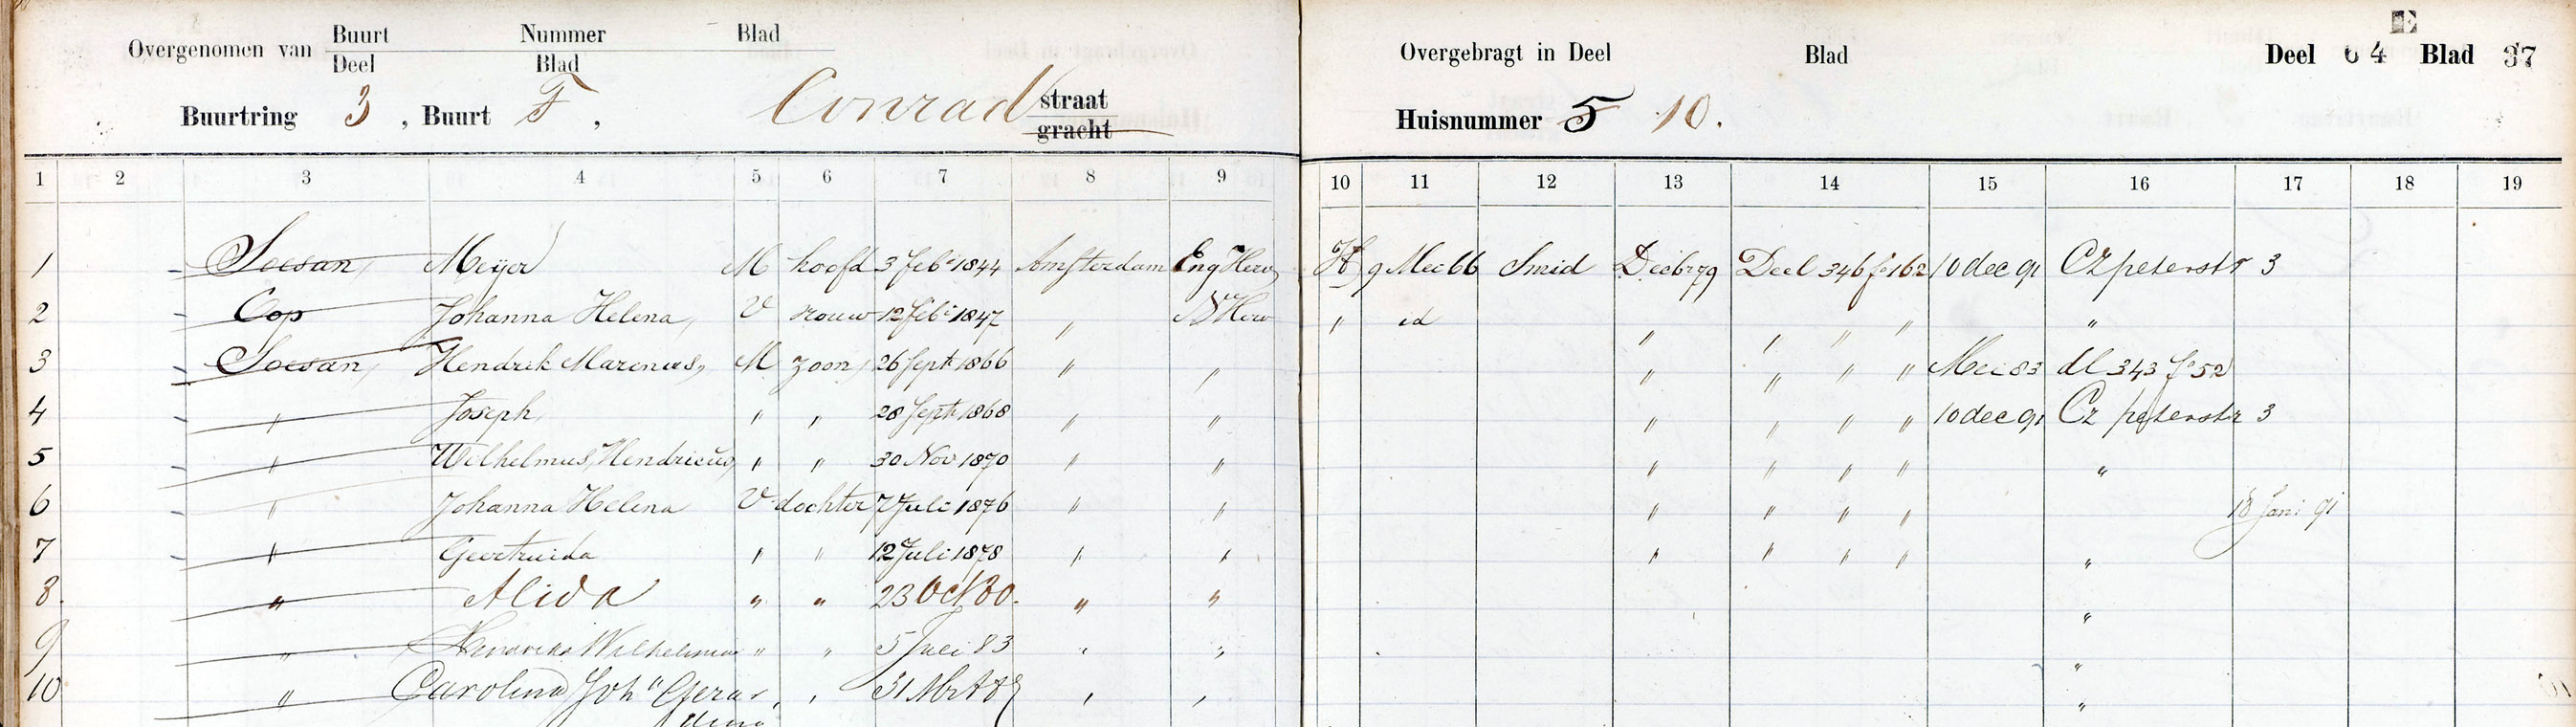 Overgenomen van Buurt Nummer Blad
Deel Blad
Buurtring 3, Buurt F, Conrad straat
gracht
Overgebragt in Deel Blad Deel 64 Blad 37
E
Huisnummer 5 10.
1 2 3 4 5 6 7 8 9 10 11 12 13 14 15 16 17 18 19
1 Soesan, Meijer M hoofd 3 Feb 1844 Amsterdam Eng Herv H 9 Mei 66 Smid Decbr 79 Deel 346 fo 162 10 dec 91 Cz peterstr 3
2 Cop Johanna Helena, V vrouw 12 Feb 1847 " N Herv " id " " " " "
3 Soesan, Hendrik Marinus, M zoon, 26 Sept 1866 " " " " " " Mei 83 dl 343 fo 52
4 " Joseph, " " 28 Sept 1868 " " " " " " 10 dec 91 Cz peterstr 3
5 " Wilhelmus, Hendricus, " " 30 Nov 1870 " " " " " " "
6 " Johanna Helena V dochter 7 Juli 1876 " " " " " " 18 Jani 91
7 " Geertruida " " 12 Juli 1878 " " " " " " "
8. " Alida " " 23 Oct 80. " " "
9 " Hendrika Wilhelmina " " 5 Juli 83 " " "
10 " Carolina Joha Gerar, " 31 Mrt " " "
dina